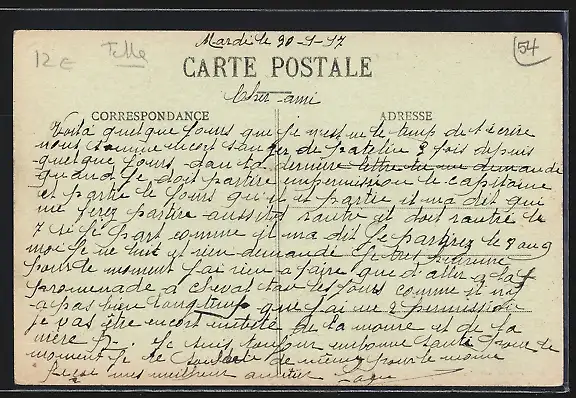 Mardi le 90-1-17
12 €
54
CARTE POSTALE
Cher ami
CORRESPONDANCE ADRESSE
Voilà quelque jours que je le temp de t'écrire
nous somme encort de 2 fois depuis
quelque jours dan ta dernière lettre tu me demande
quand je doit partire en permission le capitaine
et partie le jours qu'il et partie il ma dit qui
me ferez partire aussitot rantré il doit rantré le
7 si je part comme il ma dit je partirez le 7 au 9
moi je ne lui et rien demandé
pour le moment j'ai rien a faire que d'aller a la
promenade a cheval tou les jours comme il n'y
a pas bien longtemp que j'ai ue 2 permission
je vas être encort de la et de la
mère je suis toujour en bonne santé pour le
moment je te de même pour le moine
mes meilleur amitier